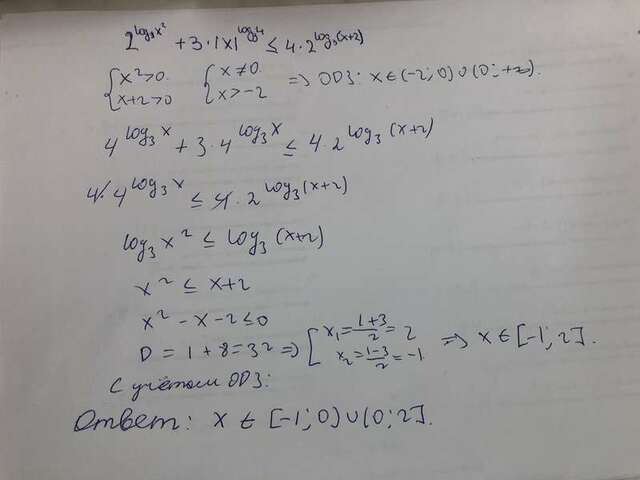 2^{log_3 x^2} + 3·|x|^{log_3 4} ≤ 4·2^{log_3(x+2)}
{x²>0. x+2>0 {x≠0. x>-2 => ОДЗ: x∈(-2;0)∪(0;+∞).
4^{log_3 x} + 3·4^{log_3 x} ≤ 4·2^{log_3(x+2)}
4·4^{log_3 x} ≤ 4·2^{log_3(x+2)}
log_3 x² ≤ log_3(x+2)
x² ≤ x+2
x² - x - 2 ≤ 0
D = 1+8 = 3² => [x_1 = \frac{1+3}{2} = 2 x_2 = \frac{1-3}{2} = -1 => x∈[-1;2].
С учётом ОДЗ:
Ответ: x ∈ [-1;0)∪(0;2].